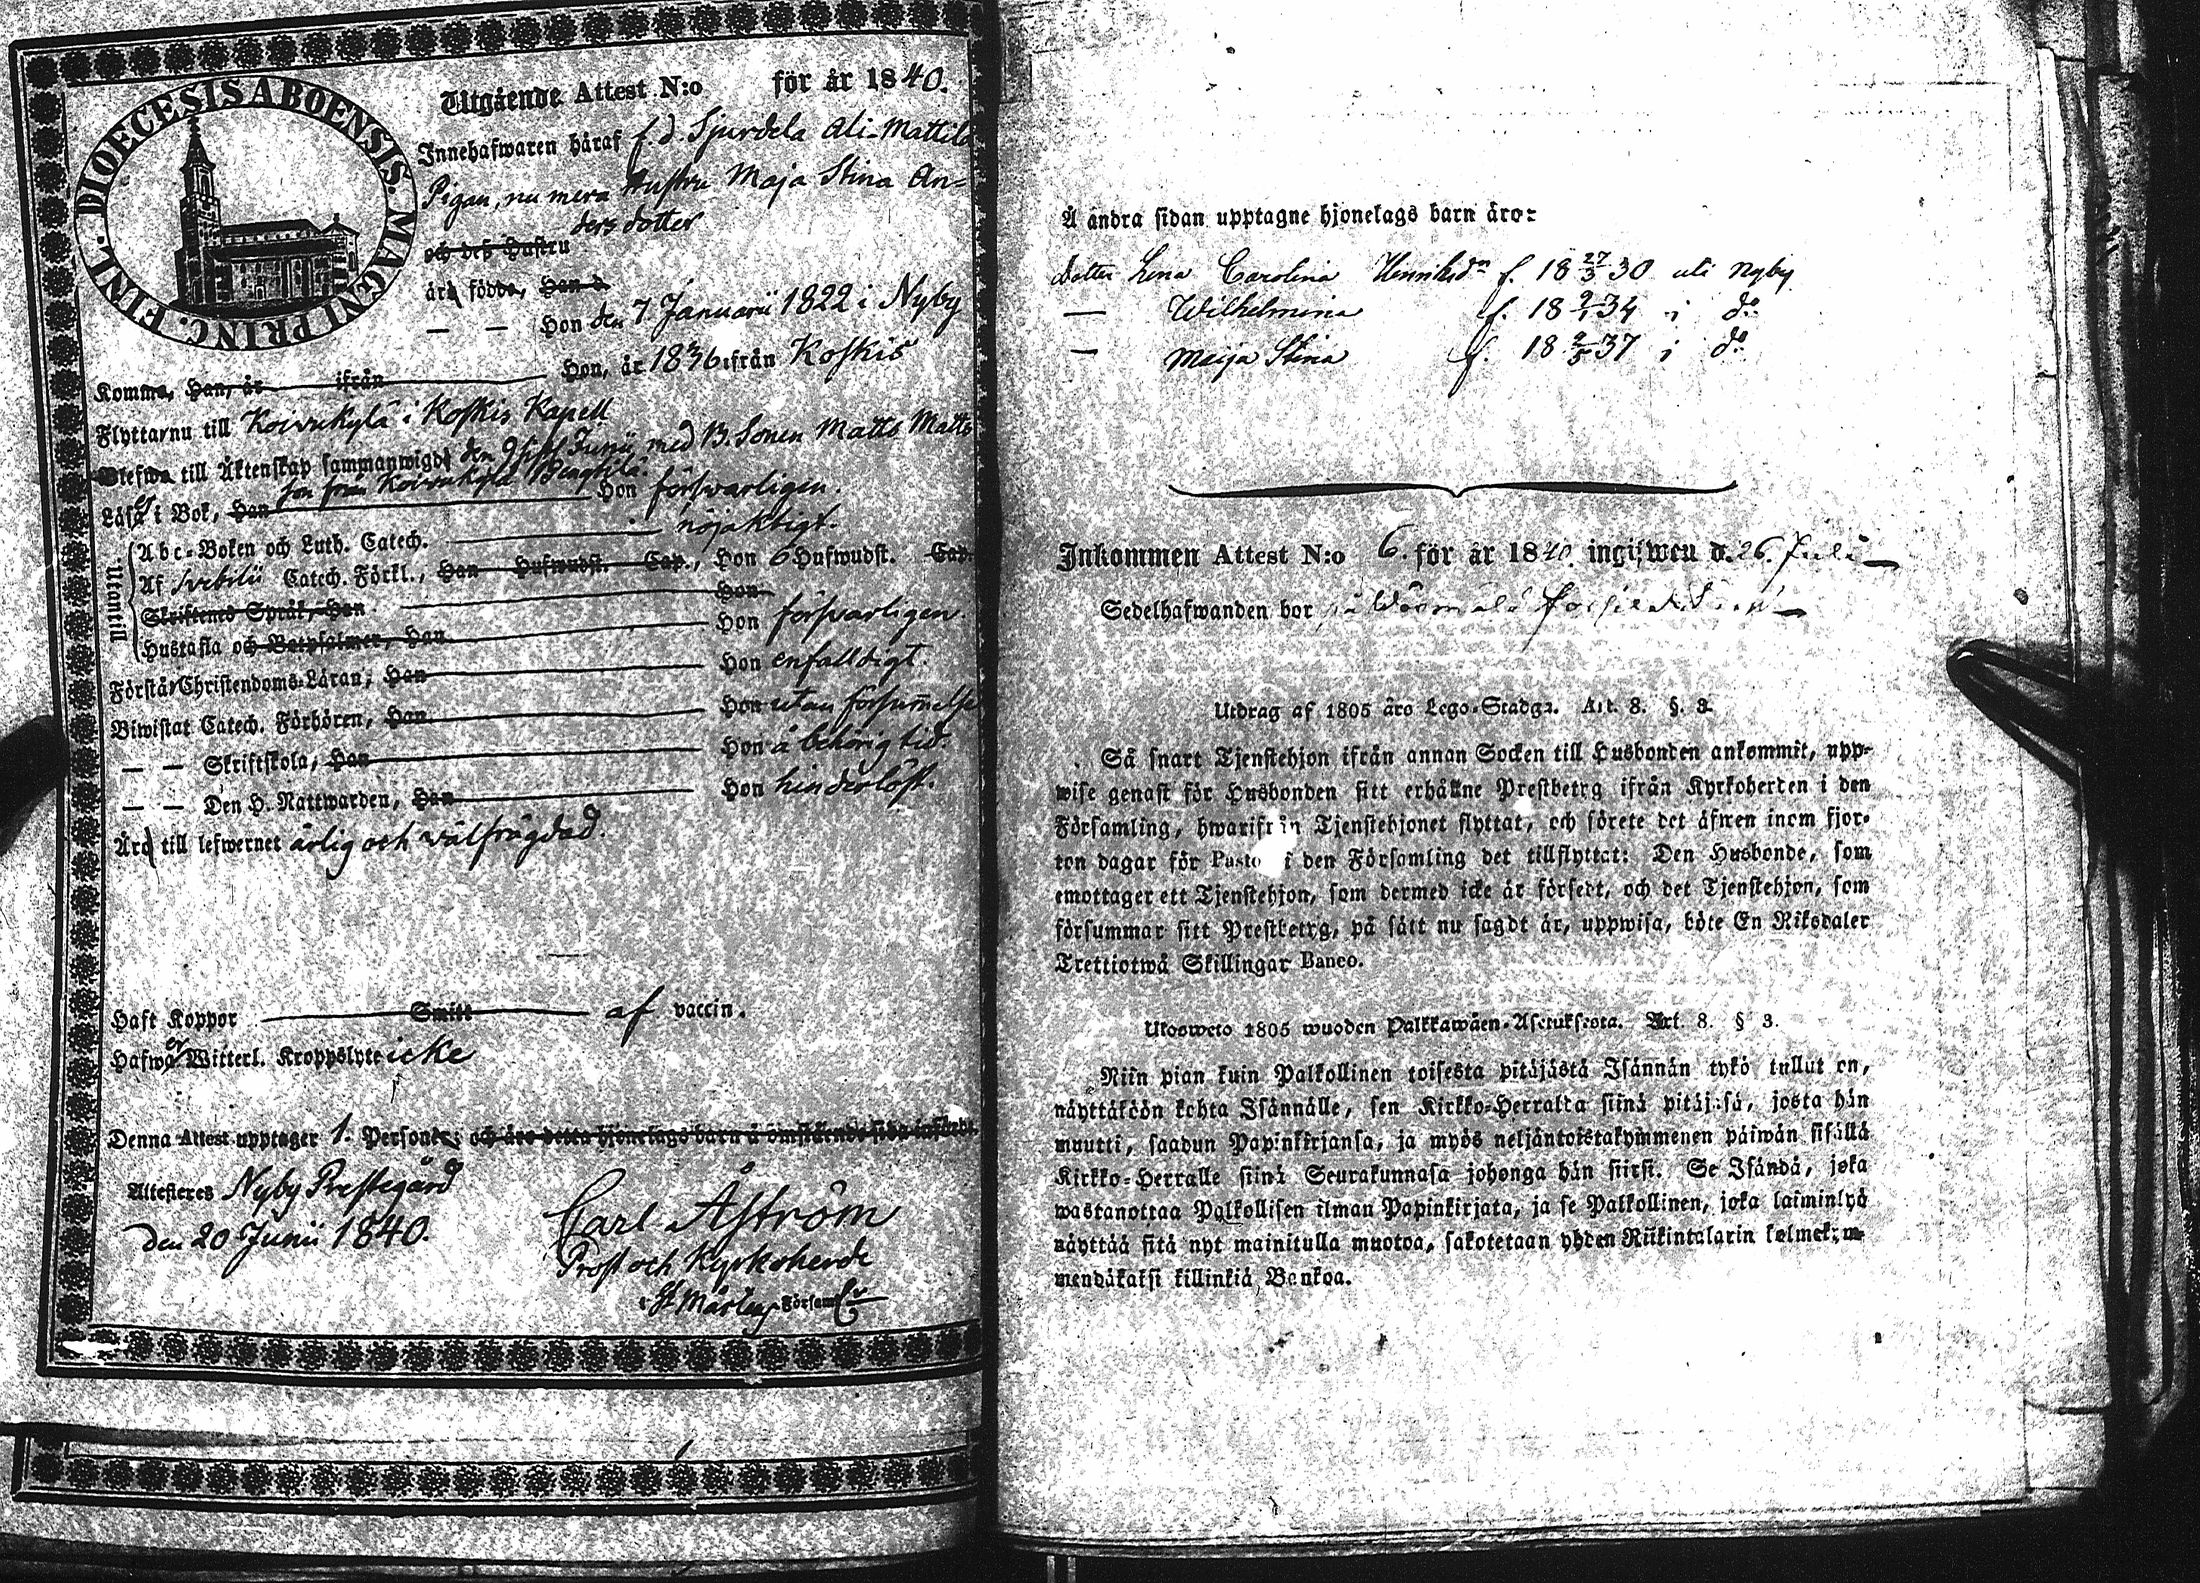 DIOECESIS ABOENSIS. MAGNI PRINC. FINL.
Utgående Attest N:o för år 1840.
Innehafwaren häraf f. d. Sjurdela Ali-Mattila
Pigan, nu mera Hustru Maja Stina An-
ders dotter
och dess Hustru
äro födde, Han d.
— — Hon den 7 Januarii 1822 i Nyby
Komme, Han, år ifrån Hon, år 1836 ifrån Koskis
Flyttar nu till Koivukylä i Koskis Kapell
Blefwe till Äktenskap sammanwigde den 9 sistl. Junii, med B. Sonen Matts Matts
son från Koivukylä Bengtilä.
Läsa i Bok, Han Hon förswarligen.
Utantill
Abc-Boken och Luth. Catech. nöjaktigt.
Af Svebilii Catech. Förkl., Han Hufwudst. Cap., Hon 6 Hufwudst. Cap.
Skriftenes Språk, Han Hon
Hustafla och Botpsalmer, Han Hon förswarligen.
Förstår Christendoms-Läran, Han Hon enfalldigt.
Biwistat Catech. Förhören, Han Hon utan försummelse
— — Skriftskola, Han Hon å behörig tid.
— — Den H. Nattwarden, Han Hon hinderlöst.
Äro till lefwernet ärlig och välfrägdad.
Haft Koppor Smitt af vaccin.
Hafwa Witterl. Kroppslyte icke
Denna Attest upptager 1. Personer; och äro detta hjonelags barn å omstående sida införde.
Attesteres Nyby Prestegård
den 20 Junii 1840.
Carl Åström
Prost och Kyrkoherde
i St Mårtens Församl.
Å andra sidan upptagne hjonelags barn äro:
Dotter Lena Carolina Henriksdr f. 18 27/3 30 uti Nyby
— Wilhelmina f. 18 9/1 34 i do
— Maija Stina f. 18 9/5 37 i do
Inkommen Attest N:o 6. för år 1840. ingifwen d. 26. Juli
Sedelhafwanden bor
Utdrag af 1805 års Lego-Stadga. Art. 8. §. 3.
Så snart Tjenstehjon ifrån annan Socken till Husbonden ankommit, upp-
wise genast för Husbonden sitt erhållne Prestbetyg ifrån Kyrkoherden i den
Församling, hwarifrån Tjenstehjonet flyttat, och förete det äfwen inom fjor-
ton dagar för Pastor i den Församling det tillflyttat: Den Husbonde, som
emottager ett Tjenstehjon, som dermed icke är försedt, och det Tjenstehjon, som
försummar sitt Prestbetyg, på sätt nu sagdt är, uppwisa, böte En Riksdaler
Trettiotwå Skillingar Banco.
Ulosweto 1805 wuoden Palkkawäen-Asetuksesta. Art. 8. § 3.
Niin pian kuin Palkollinen toisesta pitäjästä Isännän tykö tullut on,
näyttäköön kohta Isännälle, sen Kirkko-Herralta siinä pitäjäsä, josta hän
muutti, saadun Papinkirjansa, ja myös neljäntoistakymmenen päiwän sisällä
Kirkko-Herralle siinä Seurakunnasa johonga hän siirsi. Se Isändä, joka
wastanottaa Palkollisen ilman Papinkirjata, ja se Palkollinen, joka laiminlyö
näyttää sitä nyt mainitulla muotoa, sakotetaan yhden Riikintalarin kolmekym-
mendäkaksi killinkiä Bankoa.